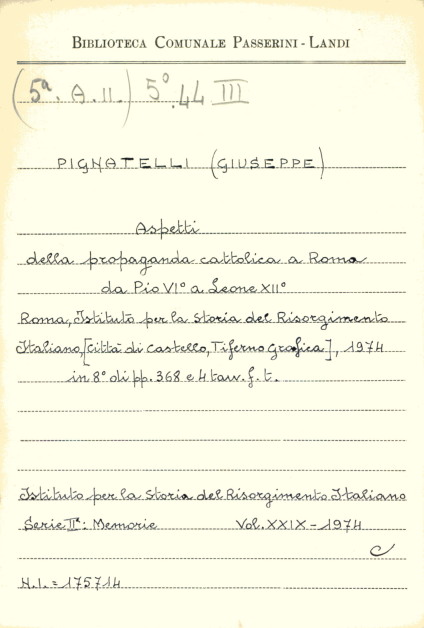 BIBLIOTECA COMUNALE PASSERINI - LANDI
(5ª. A. II.) 5°.44 III
PIGNATELLI (GIUSEPPE)
Aspetti
della propaganda cattolica a Roma
da Pio VI° a Leone XII°
Roma, Istituto per la Storia del Risorgimento
Italiano, [Città di Castello, Tiferno Grafica], 1974
in 8° di pp. 368 e 4 tavv. f. t.
Istituto per la Storia del Risorgimento Italiano
Serie IIª: Memorie Vol. XXIX - 1974
C
N.I. = 175714